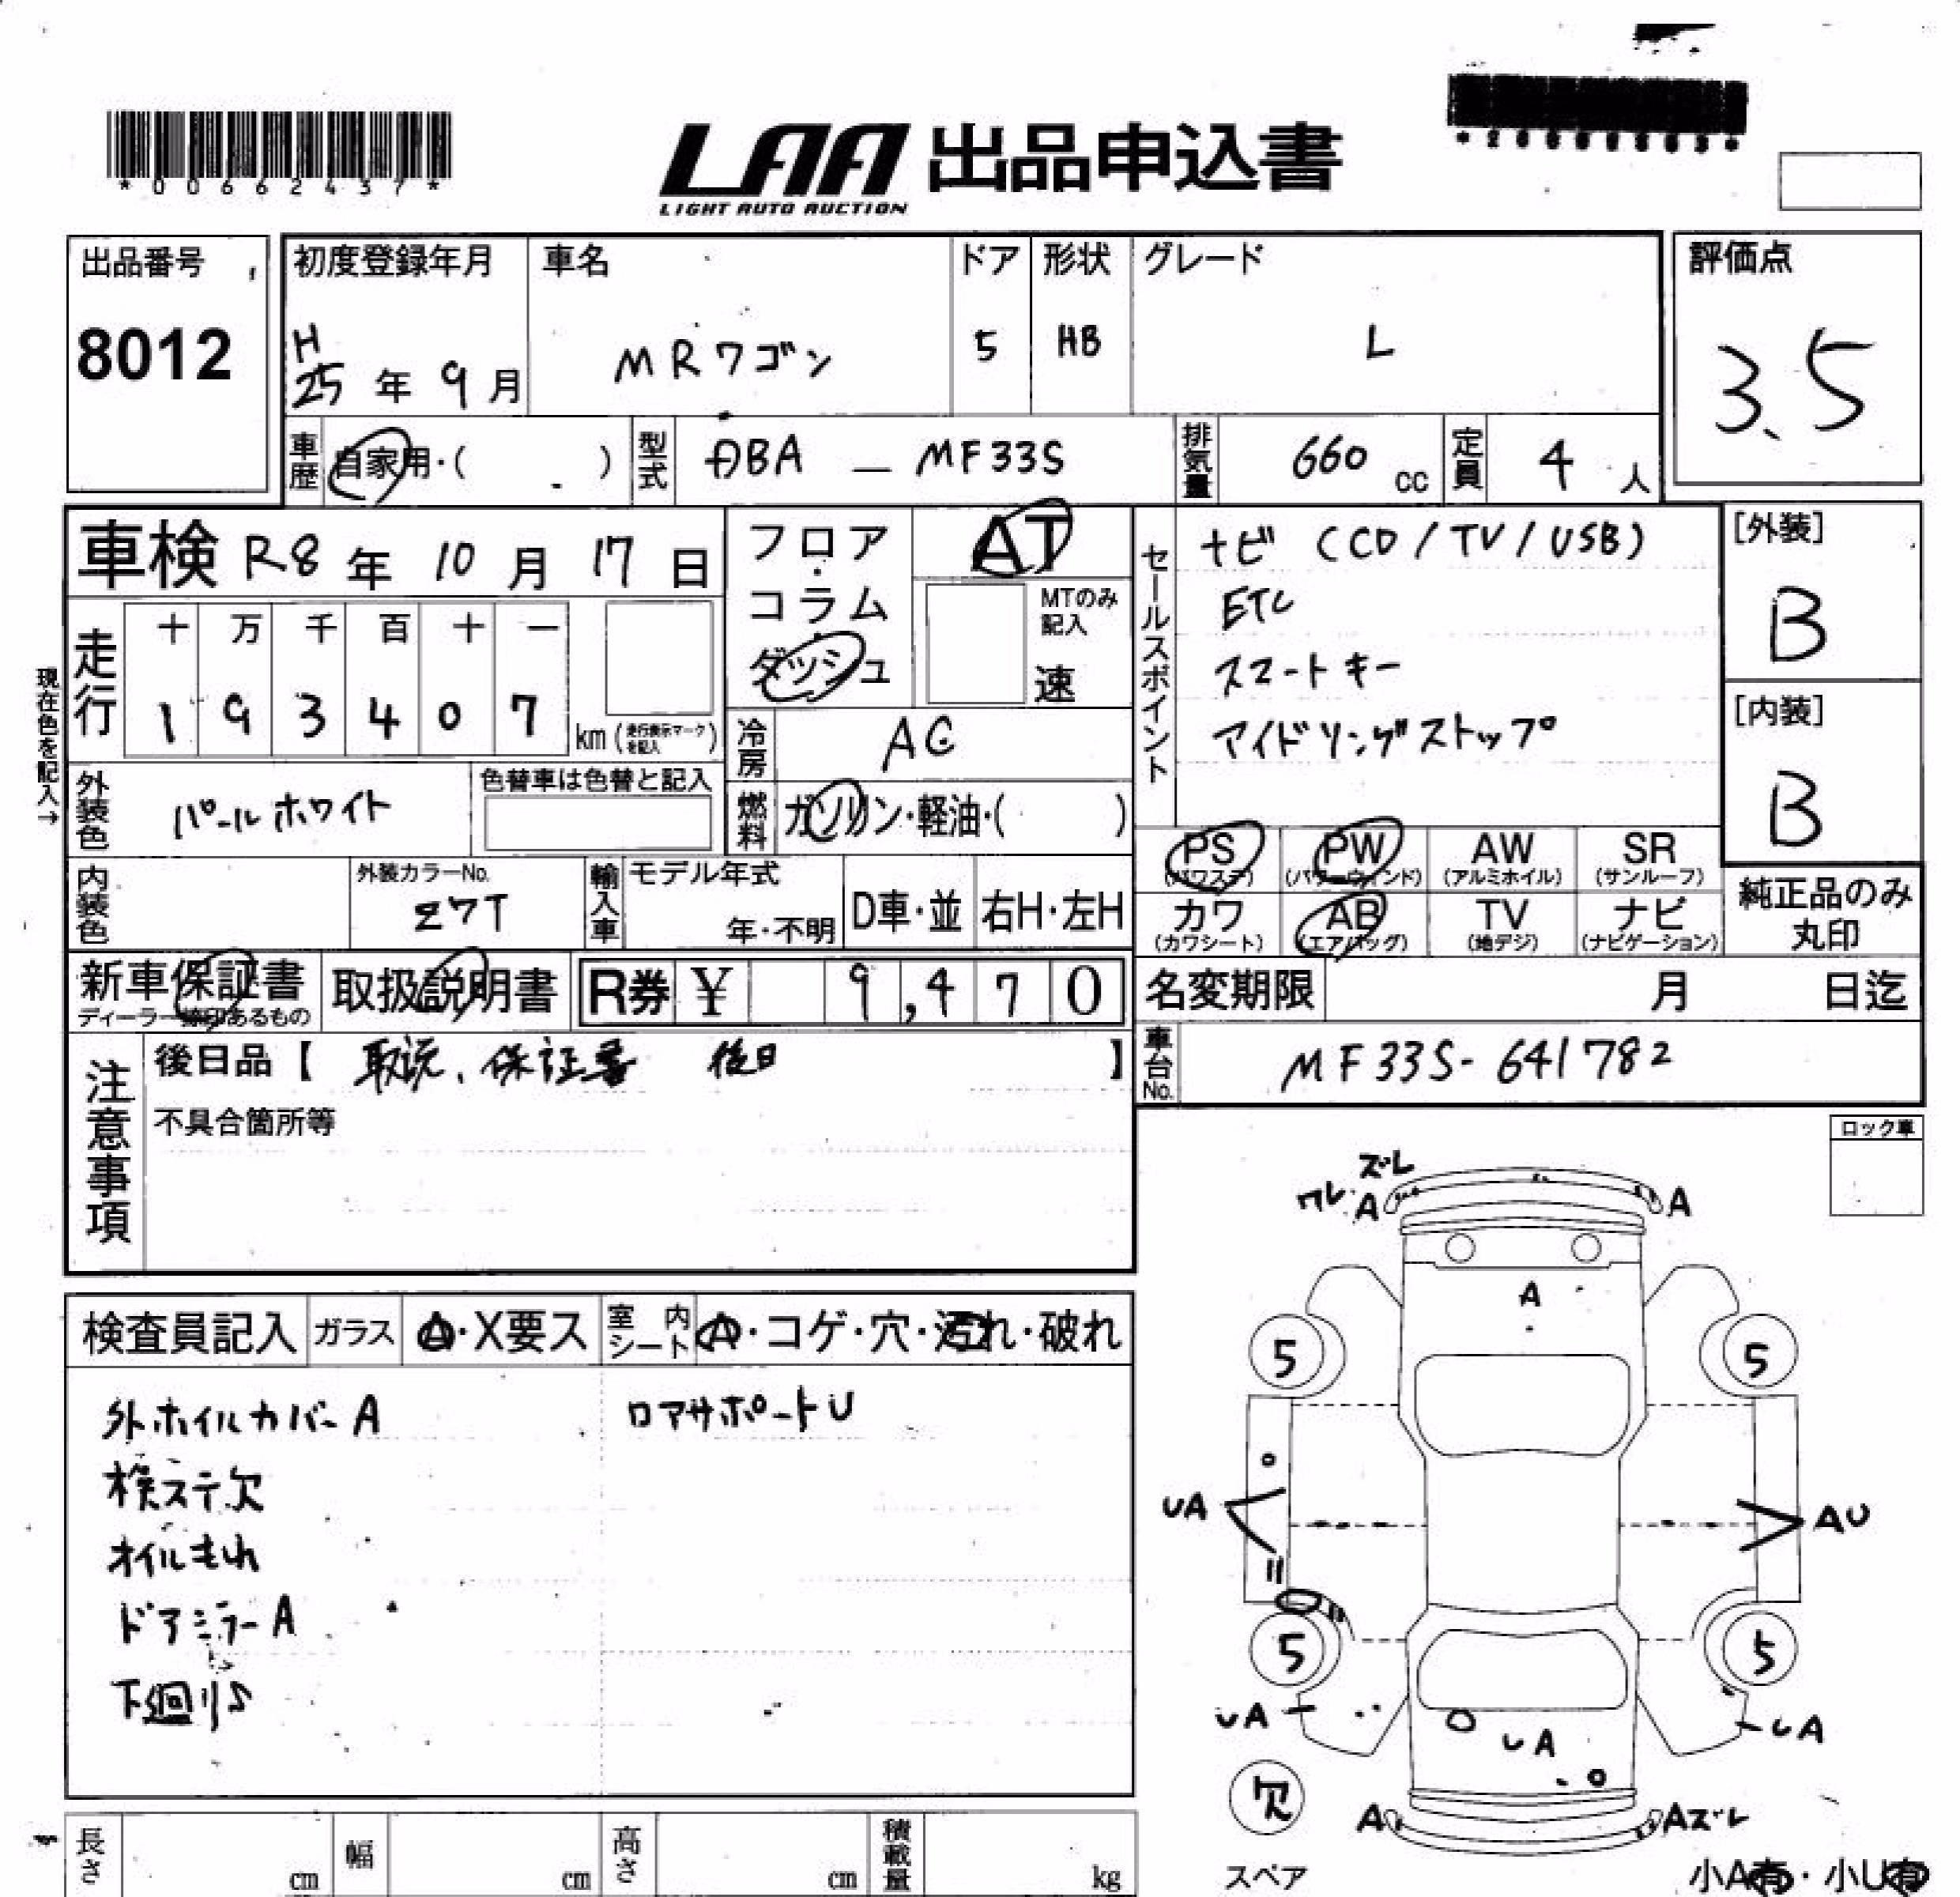 *00662437*
LAA 出品申込書
LIGHT AUTO AUCTION
出品番号
8012
初度登録年月
H
25 年 9 月
車名
MRワゴン
ドア
5
形状
HB
グレード
L
評価点
3.5
車歴
自家用・( )
型式
ABA - MF33S
排気量
660 cc
定員
4 人
車検 R8 年 10 月 17 日
フロア・コラム・ダッシュ
AT
MTのみ記入
速
セールスポイント
ナビ (CD/TV/USB)
ETC
スマートキー
アイドリングストップ
[外装]
B
[内装]
B
現在色を記入→
走行
十 万 千 百 十 一
1 9 3 4 0 7
km (走行表示マークを記入)
冷房
AC
外装色
パールホワイト
色替車は色替と記入
燃料
ガソリン・軽油・( )
内装色
外装カラーNo.
Z7T
輸入車
モデル年式
年・不明
D車・並
右H・左H
PS (パワステ)
PW (パワーウィンド)
AW (アルミホイル)
SR (サンルーフ)
カワ (カワシート)
AB (エアバッグ)
TV (地デジ)
ナビ (ナビゲーション)
純正品のみ丸印
新車保証書
ディーラー捺印あるもの
取扱説明書
R券 ¥ 9,470
名変期限 月 日迄
注意事項
後日品【 取説、保証書 後日 】
不具合箇所等
車台No.
MF33S-641782
ロック車
検査員記入
ガラス
A・X要ス
室内シート
A・コゲ・穴・汚れ・破れ
外ホイルカバーA
ロアサポートU
検ステ欠
オイルもれ
ドアミラーA
下廻りS
ズレ
ワレ A
A
A
5
5
UA
AU
5
5
UA
UA
UA
欠
A
Aズレ
スペア
小A有・小U有
長さ cm
幅 cm
高さ cm
積載量 kg